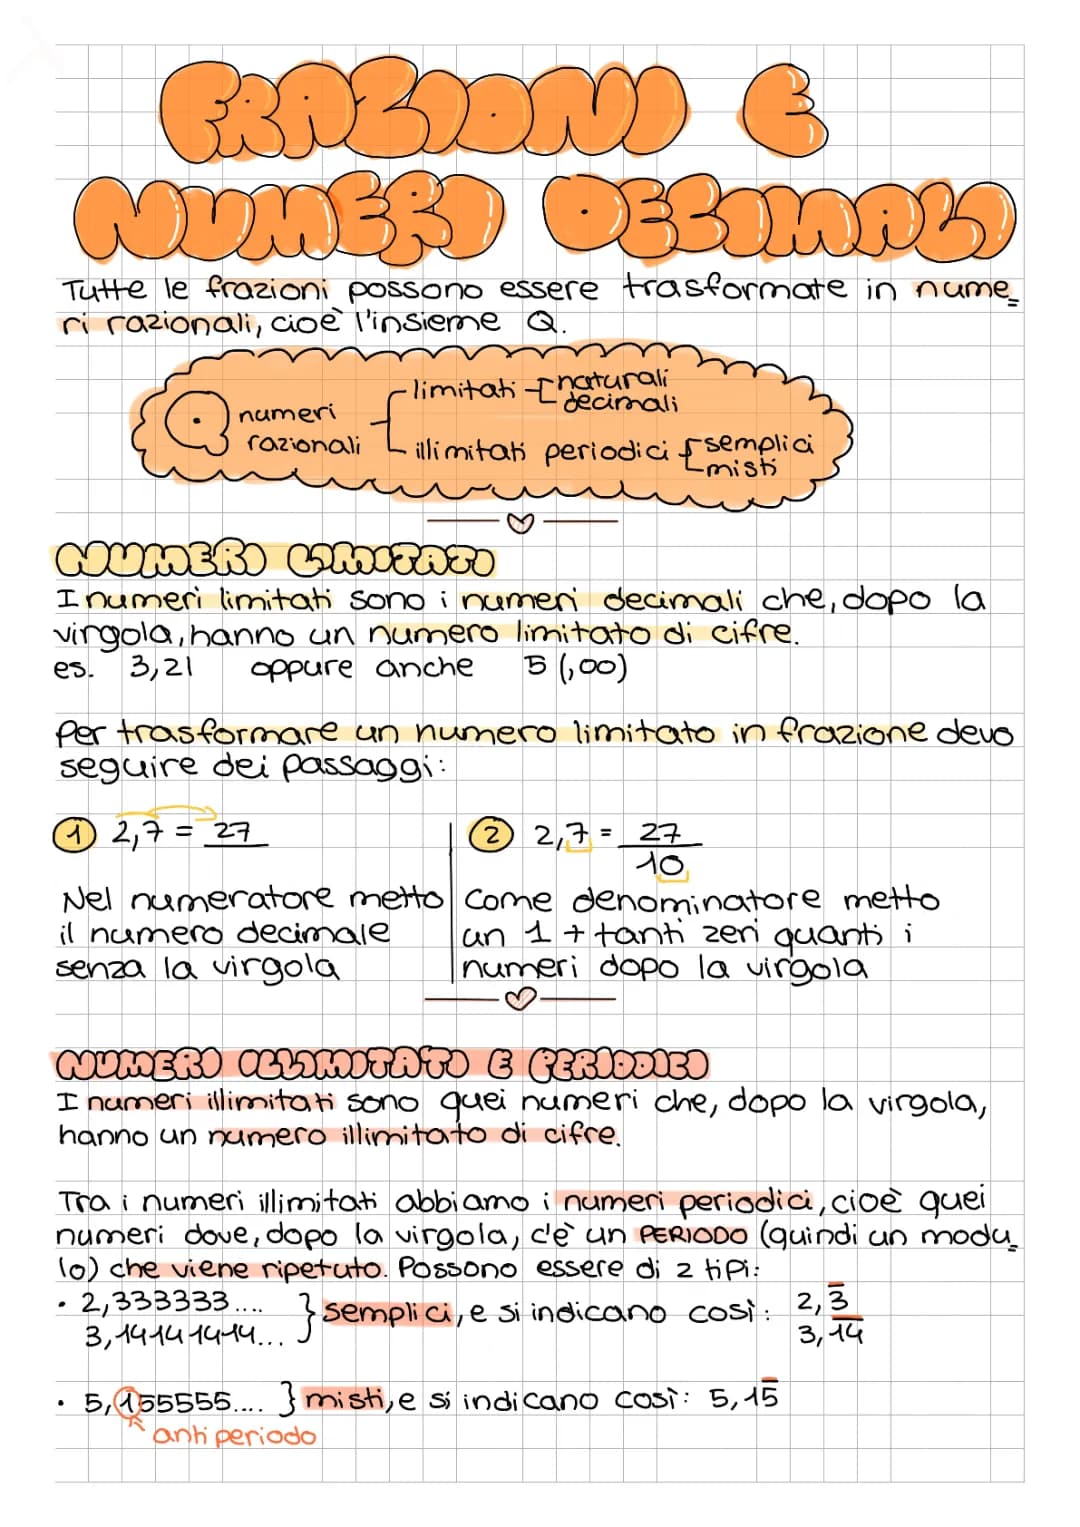 FRAZIONI E
NUMERI DECIMALI
Tutte le frazioni possono essere trasformate in nume=
ri razionali, cioè l'insieme Q.
Q numeri razionali
limitati
naturali
decimali
illimitati periodici
semplici
misti
NUMERI LIMITATI
I numeri limitati sono i numeri decimali che, dopo la
virgola, hanno un numero limitato di cifre.
es. 3,21 oppure anche 5 (,00)
Per trasformare un numero limitato in frazione devo
seguire dei passaggi:
1 2,7 = 27
Nel numeratore metto
il numero decimale
senza la virgola
2 2,7 = 27
10
Come denominatore metto
un 1 + tanti zeri quanti i
numeri dopo la virgola
NUMERI ILLIMITATI E PERIODICI
I numeri illimitati sono quei numeri che, dopo la virgola,
hanno un numero illimitato di cifre.
Tra i numeri illimitati abbiamo i numeri periodici, cioè quei
numeri dove, dopo la virgola, c'è un PERIODO (quindi un modu=
lo) che viene ripetuto. Possono essere di 2 tipi:
• 2,333333.... } semplici, e si indicano così: 2,3̅
3,14141414... 3,1̅4̅
• 5,155555.... } misti, e si indicano così: 5,15̅
antiperiodo